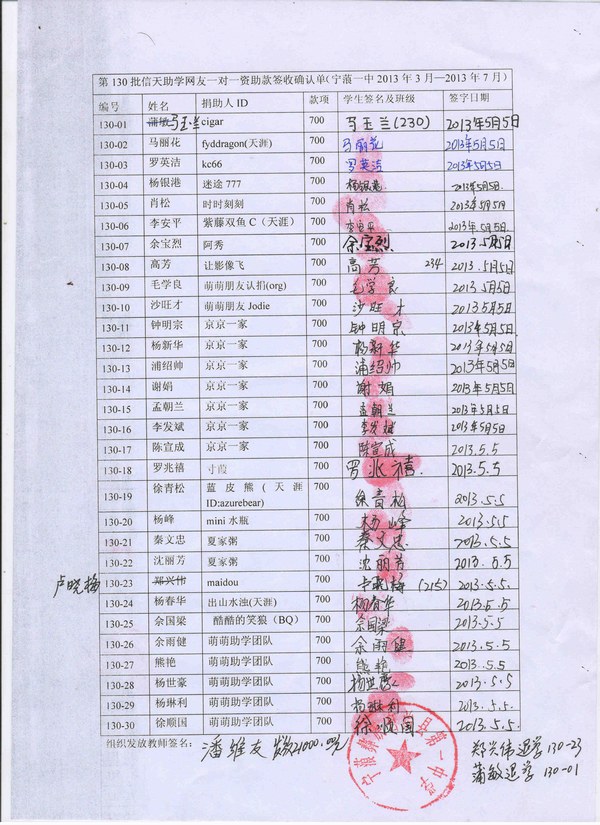 第 130 批信天助学网友一对一资助款签收确认单(宁蒗一中 2013 年 3 月—2013 年 7 月)
编号 姓名 捐助人 ID 款项 学生签名及班级 签字日期
130-01 蒲敏 马玉兰 cigar 700 马玉兰(230) 2013年5月5日
130-02 马丽花 fyddragon(天涯) 700 马丽花 2013年5月5日
130-03 罗英洁 kc66 700 罗英洁 2013年5月5日
130-04 杨银港 迷途 777 700 杨银港 2013年5月5日.
130-05 肖松 时时刻刻 700 肖松 2013年5月5日
130-06 李安平 紫藤双鱼 C（天涯） 700 李安平 2013年5月5日.
130-07 余宝烈 阿秀 700 余宝烈 2013.5月5日
130-08 高芳 让影像飞 700 高芳 234 2013.5月5日
130-09 毛学良 萌萌朋友认捐(org) 700 毛学良 2013.5月5日
130-10 沙旺才 萌萌朋友 Jodie 700 沙旺才 2013.5月5日
130-11 钟明宗 京京一家 700 钟明宗 2013年5月5日
130-12 杨新华 京京一家 700 杨新华 2013年5月5日
130-13 浦绍帅 京京一家 700 浦绍帅 2013年5月5日
130-14 谢娟 京京一家 700 谢娟 2013年5月5日
130-15 孟朝兰 京京一家 700 孟朝兰 2013年5月5日
130-16 李发斌 京京一家 700 李发斌 2013年5月5日
130-17 陈宣成 京京一家 700 陈宣成 2013.5.5
130-18 罗兆禧 寸霞 700 罗兆禧. 2013.5.5
130-19 徐青松 蓝皮熊(天涯 700 徐青松 2013.5.5
ID:azurebear)
130-20 杨峰 mini 水瓶 700 杨峰 2013.5.5
130-21 秦文忠 夏家粥 700 秦文忠 2013.5.5.
130-22 沈丽芳 夏家粥 700 沈丽芳 2013.5.5
卢晓梅 130-23 郑兴伟 maidou 700 卢晓梅 (215) 2013.5.5.
130-24 杨春华 出山水浊(天涯) 700 杨春华 2013.5.5
130-25 余国梁 酷酷的笑狼（BQ） 700 余国梁 2013.5.5
130-26 余雨健 萌萌助学团队 700 余雨健 2013.5.5
130-27 熊艳 萌萌助学团队 700 熊艳 2013.5.5
130-28 杨世豪 萌萌助学团队 700 杨世豪 2013.5.5
130-29 杨琳利 萌萌助学团队 700 杨琳利 2013.5.5.
130-30 徐顺国 萌萌助学团队 700 徐顺国 2013.5.5.
组织发放教师签名： 潘维友 21000.00元
郑兴伟退学 130-23
蒲敏退学 130-01